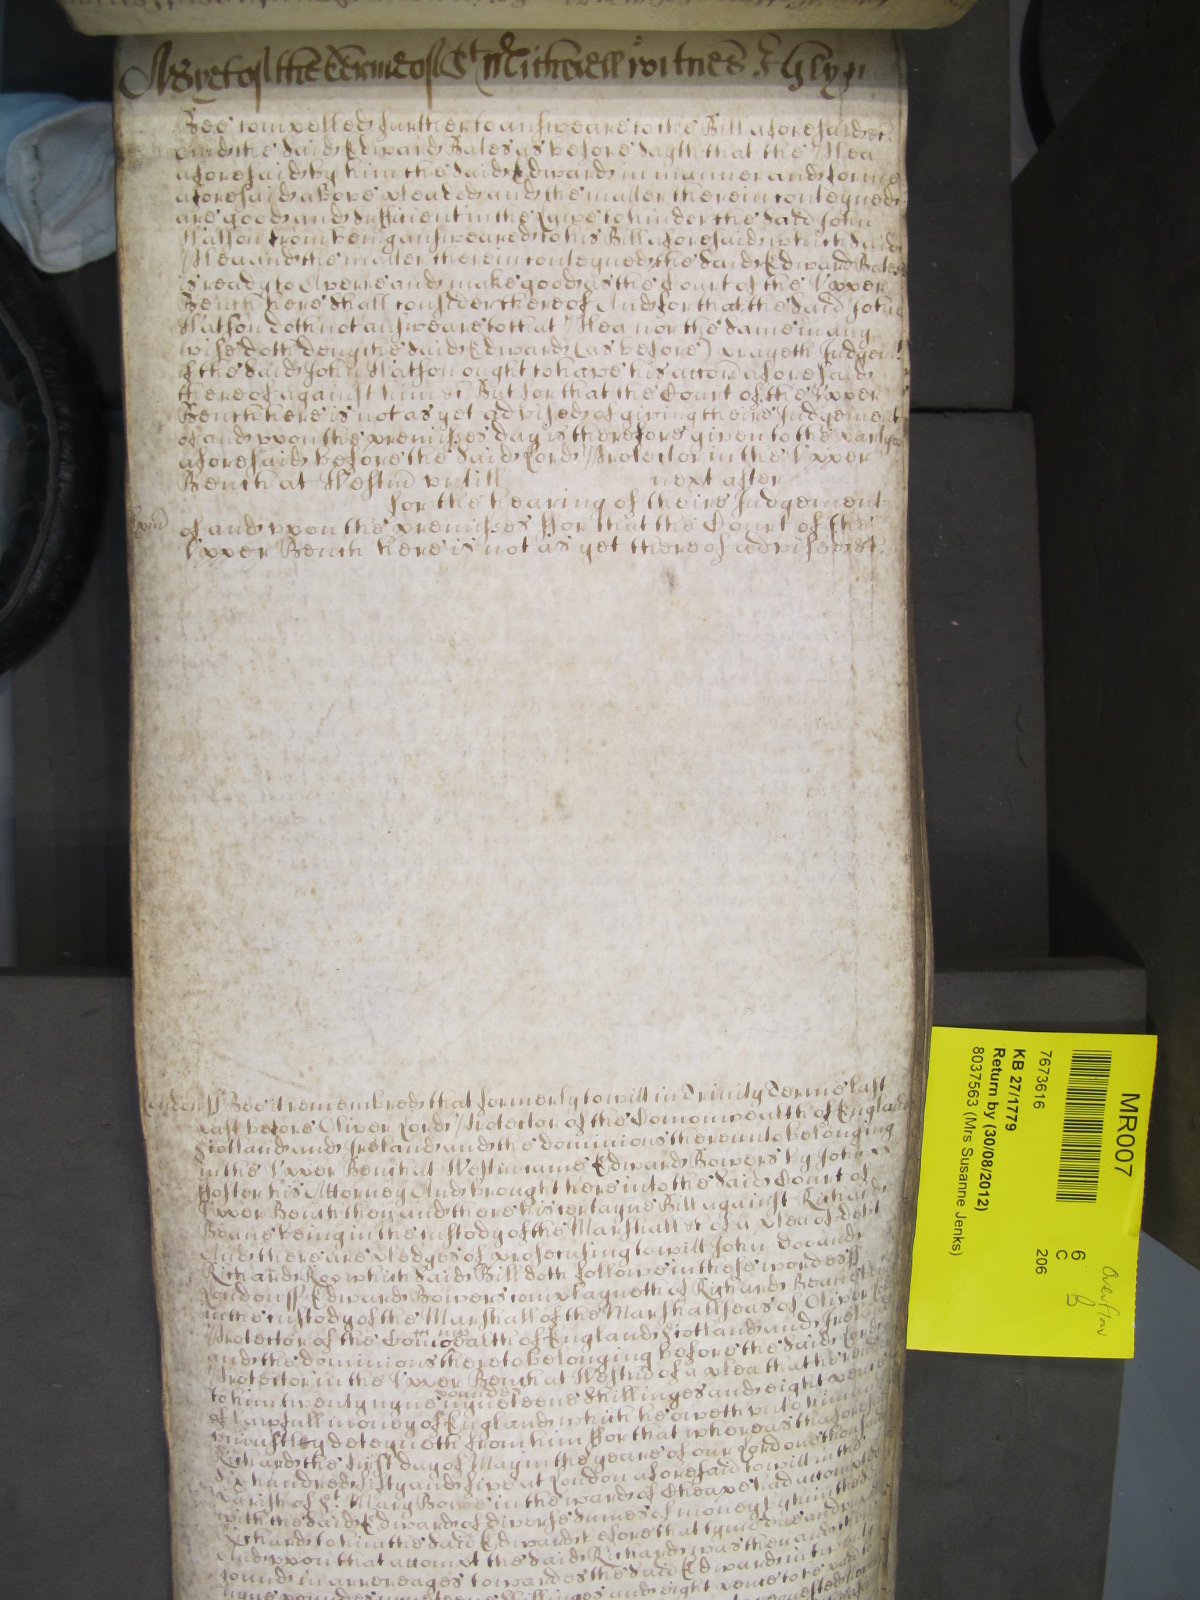 As yet of the terme of St Michaell witnes Glyn
Bee compelled further to answeare to the Bill aforesaid &c
And the said Edward Bates as before sayth that the Plea
aforesaid by him the said Edward in manner and forme
aforesaid above pleaded and the matter therein conteyned
are good and sufficient in the Lawe to hinder the said John
Watson from being answeared to his Bill aforesaid which said
Plea and the matter therein conteyned the said Edward Bates
is ready to Averre and make good as the Court of the Upper
Bench here shall consider thereof And for that the said John
Watson doth not answeare to that Plea nor the same in any
wise doth deny the said Edward (as before) prayeth Judgemt
if the said John Watson ought to have his accon aforesaid
thereof against him &c But for that the Court of the Upper
Bench here is not as yet advised of giving theire Judgement
of and uppon the premisses day is therefore given to the partyes
aforesaid before the said Lord Protector in the Upper
Bench at Westm untill next after
for the hearing of theire Judgement
of and uppon the premisses ffor that the Court of the
Upper Bench here is not as yet thereof advised &c
London ss Bee it remembred that formerly to will in Trinity Terme last
past before Oliver Lord Protector of the Comonwealth of England
Scotland and Ireland and the dominions thereunto belonging
in the Upper Bench at Westm came Edward Bowers by John
ffoster his Attorney And brought here into the said Court of
Upper Bench then and there his certayne Bill against Richard
Beane being in the custody of the Marshall &c of a plea of debt
And there are pledges of prosecuting to will John Doe and
Richard Roo which said Bill doth followe in these wordes ss
London ss Edward Bowers complayneth of Richard Beane
in the custody of the Marshall of the Marshallseas of Oliver
Protector of the Comonwealth of England Scotland and Ireland
and the dominions thereto belonging before the said Lord
Protector in the Upper Bench at Westm of a plea that he render
to him twenty nyne poundes nyneteene shillinges and eight pence
of lawfull money of England which he oweth unto him and
uniustley deteyneth from him ffor that whereas the aforesaid
Richard the first day of May in the yeare of our Lord one thousand
six hundred fifty and five at London aforesaid to will in the
Parish of St Mary Bowe in the ward of Cheape had accompted
with the said Edward of diverse summes of money by him the said
Richard to him the said Edward before that tyme due and
And uppon that accompt the said Richard was then and there
found in arrerages towardes the said Edward in twenty
nyne poundes nyneteene shillinges and eight pence to be
MR007
7673616
KB 27/1779
Return by (30/08/2012)
8037563 (Mrs Susanne Jenks)
6
C
206
overflow
B